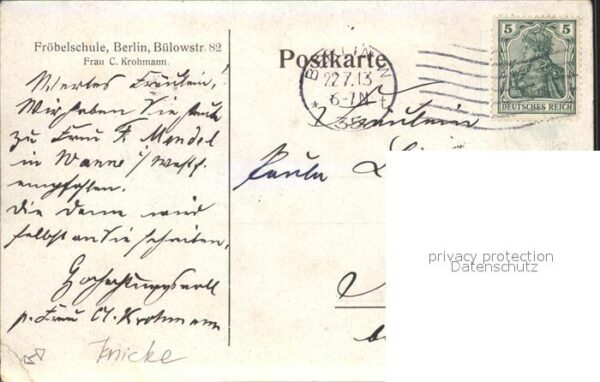 Fröbelschule, Berlin, Bülowstr. 82
Frau C. Krohmann.
Wertes Fräulein!
Wir haben Sie heute
zu Frau F. Mendel
in Wanne i/Westf.
empfohlen.
Die Dame wird
selbst an Sie schreiben.
Hochachtungsvoll
p. Frau Cl. Krohmann
Knicke
Postkarte
BERLIN
22.7.13
6-7N
5 5
DEUTSCHES REICH
Fräulein
Paula
privacy protection
Datenschutz